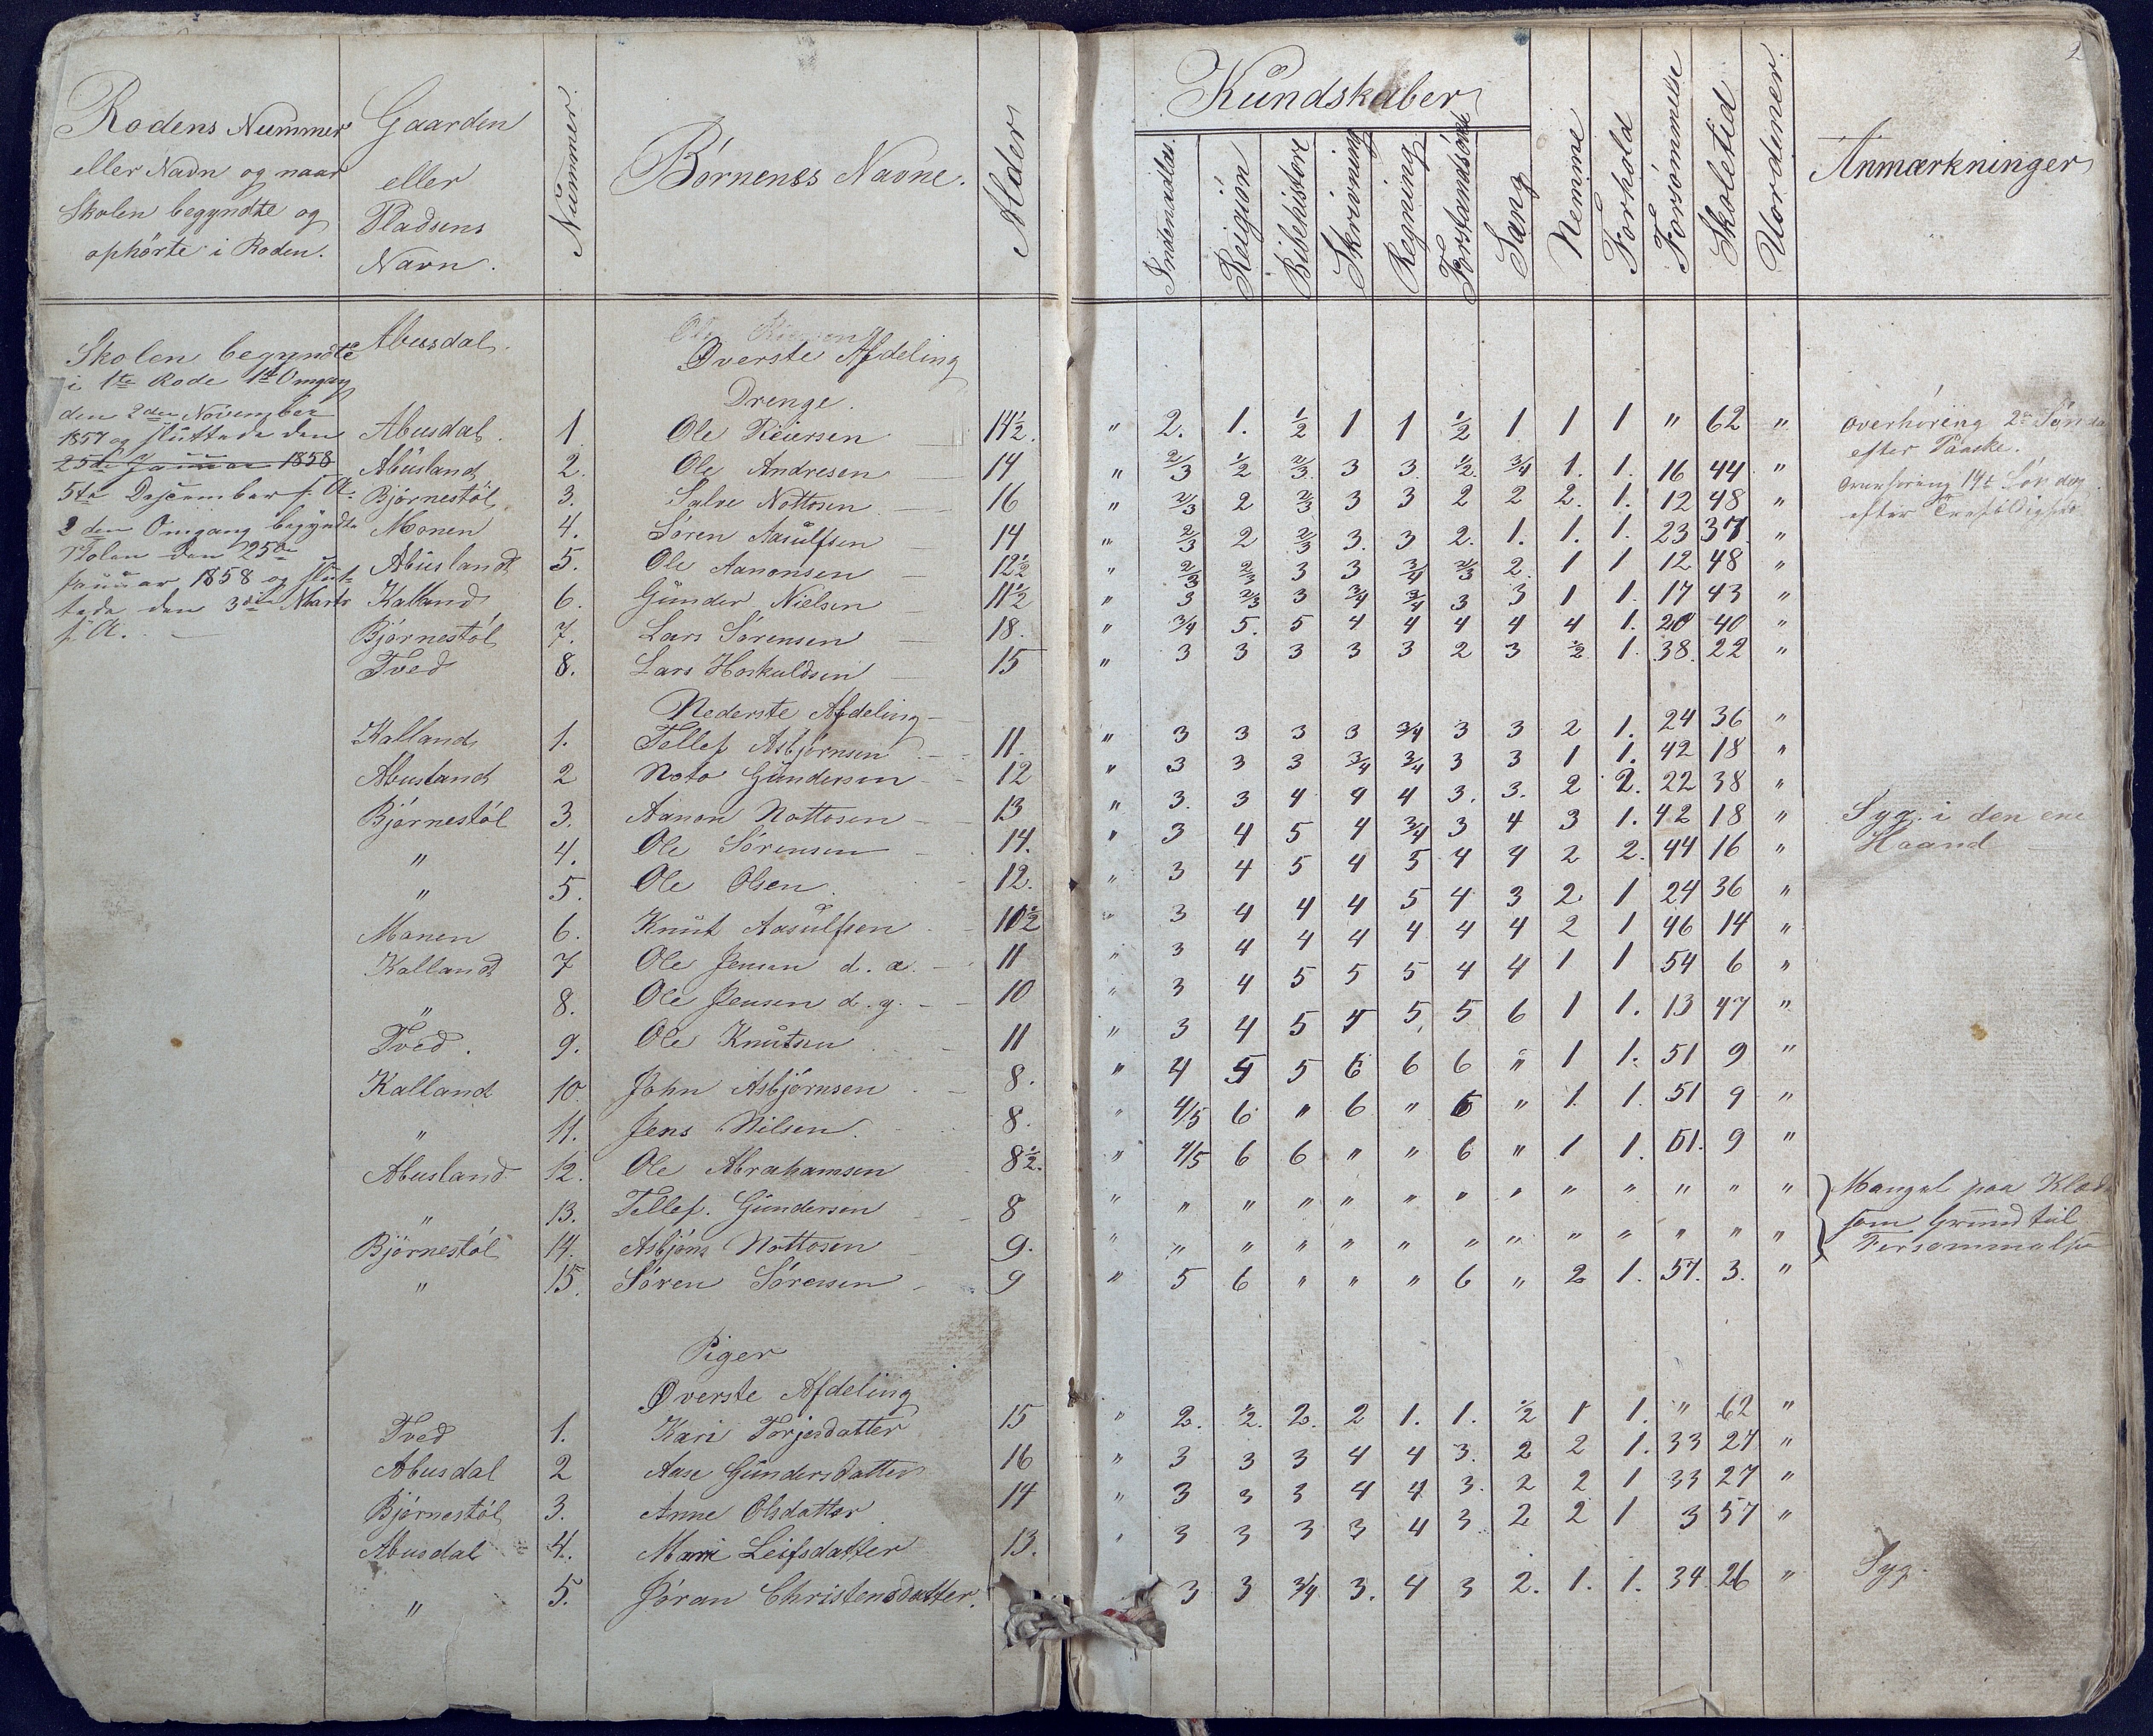 2
Rodens Nummer
eller Navn og naar
Skolen begyndte og
ophørte i Roden.
Gaarden
eller
Pladsens
Navn.
Nummer.
Børnenes Navne.
Alder
Kundskaber
Indenadlæs.
Religion
Bibelhistore
Skrivning
Regning
Forstandsøvels
Sang
Nemme
Forhold
Forsømmelse
Skoletid
Uordener.
Anmærkninger
Skolen begyndte
i 1te Rode 1te Omgang
den 2den November
1857 og sluttede den
25de Januar 1858
5te Dessember s. A.
2den Omgang begyndte
Skolen den 25de
Januar 1858 og slut-
tede den 3die Marts
s. A.
Abusdal.
Øverste Afdeling
Drenge.
Abusdal 1 Ole Reiersen 14½. " 2. 1. ½ 1 1 ½ 1 1 1 " 62 "
Abusland 2. Ole Andresen 14 " 2/3 ½ 2/3 3 3 ½ 3/4 1. 1. 16 44 "
Bjørnestøl 3. Salve Nottosen 16 " 2/3 2 2/3 3 3 2 2 2. 1. 12 48 "
Monen 4. Søren Aasulfsen 14 " 2/3 2 2/3 3. 3 2. 1. 1. 1. 23 37 "
Abuslandt 5. Ole Aanonsen 12½ " 2/3 2/3 3 3 3/4 2/3 2 1 1 12 48 "
Kalland 6. Gunder Nielsen 11½ " 3 2/3 3 3/4 3/4 3 3 1 1. 17 43 "
Bjørnestøl 7. Lars Sørensen 18. " 3/4 5. 5 4 4 4 4 4 1. 20 40 "
Tved 8. Lars Hoskuldsen 15 " 3 3 3 3 3 2 3 ½ 1. 38. 22 "
Nederste Afdeling
Kalland 1. Tellef Asbjørnsen 11. " 3 3 3 3 3/4 3 3 2 1. 24 36 "
Abusland 2 Noto Gundersen 12 " 3 3 3 3/4 3/4 3 3 1 1. 42 18 "
Bjørnestøl 3. Aanon Nottosen 13 " 3. 3 4 4 4 3. 3. 2 2. 22 38 "
" 4. Ole Sørensen 14. " 3 4 5 4 3/4 3 4 3 1. 42 18 "
" 5. Ole Olsen 12. " 3 4 5 4 5 4 4 2 2. 44 16 "
Monen 6. Knut Aasulfsen 10½ " 3 4 4 4 5 4 3 2 1 24 36 "
Kalland 7 Ole Jensen d. æ. 11 " 3 4 4 4 4 4 4 2 1 46 14 "
" 8. Ole Jensen d. y. 10 " 3 4 5 5 5 4 4 1 1 54 6 "
Tved. 9. Ole Knutsen 11 " 3 4 5 5 5 5 6 1 1. 13 47 "
Kalland 10. John Asbjørnsen 8. " 4 5 5 6 6 6 " 1 1. 51 9 "
" 11. Jens Nilsen. 8. " 4/5 6 " 6 " 6 " 1. 1. 51 9 "
Abusland 12. Ole Abrahamsen 8½. " 4/5 6 6 " " 6 " 1 1. 51. 9 "
" 13. Tellef. Gundersen 8 " " " " " " " " " " " " "
Bjørnestøl 14. Asbjørn Nottosen 9. " " " " " " " " " " " " "
" 15. Søren Sørensen 9 " 5 6 " " " 6 " 2 1. 57. 3. "
Piger
Øverste Afdeling
Tved 1. Kari Torjesdatter 15 " 2. ½. 2. 2 1. 1. ½ 1 1. " 62 "
Abusdal 2 Aase Gundersdatter 16 " 3 3 3 4 4 3. 2 2 1. 33 27 "
Bjørnestøl 3. Anne Olsdatter 14 " 3 3 3 4 4 3. 2 2 1 33 27 "
Abusdal 4. Mari Leifsdatter 13. " 3 3 3 3 4 3 2 2 1 3 57 "
" 5. Jøran Christensdatter. 3 3 3/4 3. 4 3 2. 1. 1. 34 26 "
Overhøring 2den Sønda
efter Paaske.
Overhøring 19de Søndag
efter Trefoldighed
Syg. i den ene
Haand
Mangel paa Klæd
som Grund til
Forsømmelse
Syg.